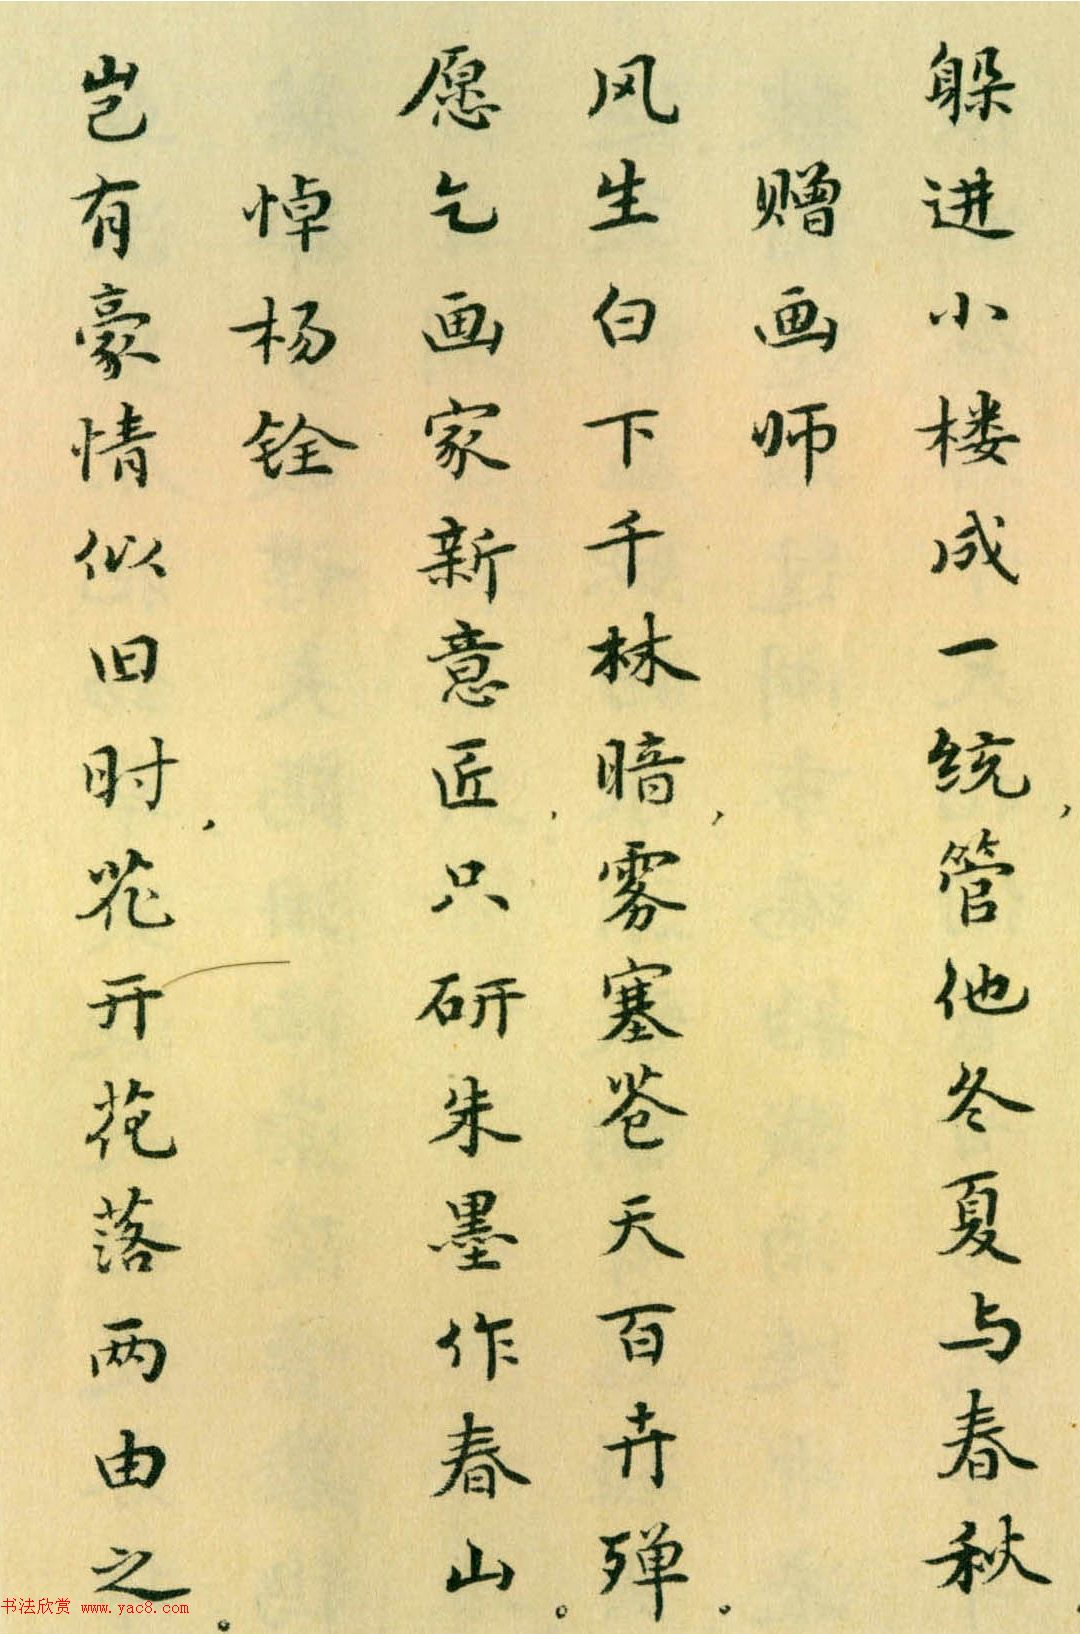 躲进小楼成一统，管他冬夏与春秋。
赠画师
风生白下千林暗，雾塞苍天百卉殚。
愿乞画家新意匠，只研朱墨作春山。
悼杨铨
岂有豪情似旧时，花开花落两由之。
书法欣赏 www.yac8.com